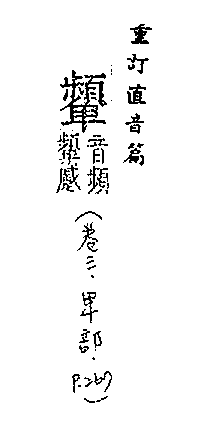 重訂直音篇
顰
音頻
顰慼
(卷三、卑部、P.267)